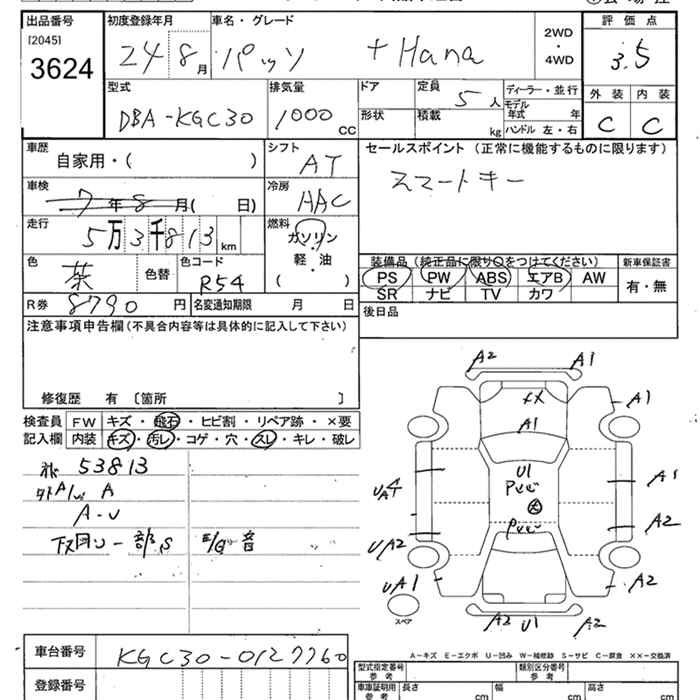 出品番号 初度登録年月 車名・グレード 2WD・4WD 評価点
[2045]
3624 24 8月 パッソ +Hana 3.5
型式 排気量 ドア 定員 ディーラー・並行 外装 内装
DBA-KGC30 1000 CC 5人 モデル年式 年 C C
形状 積載 kg ハンドル 左・右
車歴 自家用・( ) シフト AT セールスポイント (正常に機能するものに限ります)
車検 7年8月( 日) 冷房 AAC スマートキー
走行 5万3千813km 燃料 ガソリン
軽・油
( )
色 茶 色替 色コード R54 装備品 (純正品に限り○をつけてください) 新車保証書
PS PW ABS エアB AW 有・無
SR ナビ TV カワ
R券 8790円 名変通知期限 月 日 後日品
注意事項申告欄(不具合内容等は具体的に記入して下さい)
修復歴 有 〔箇所 〕
検査員 FW キズ・飛石・ヒビ割・リペア跡・×要
記入欄 内装 キズ・汚レ・コゲ・穴・スレ・キレ・破レ
53813
A
A-U
A2 A1
A1
A1
UI
A1
A2
UA2
UA1
A2
A2 U1 A2
スペア
A-キズ E-エクボ U-凹み W-補修跡 S-サビ C-腐食 XX-交換済
車台番号 KGC30-0127760
登録番号
型式指定番号 類別区分番号
車庫証明用 長さ cm 幅 cm 高さ cm
参考